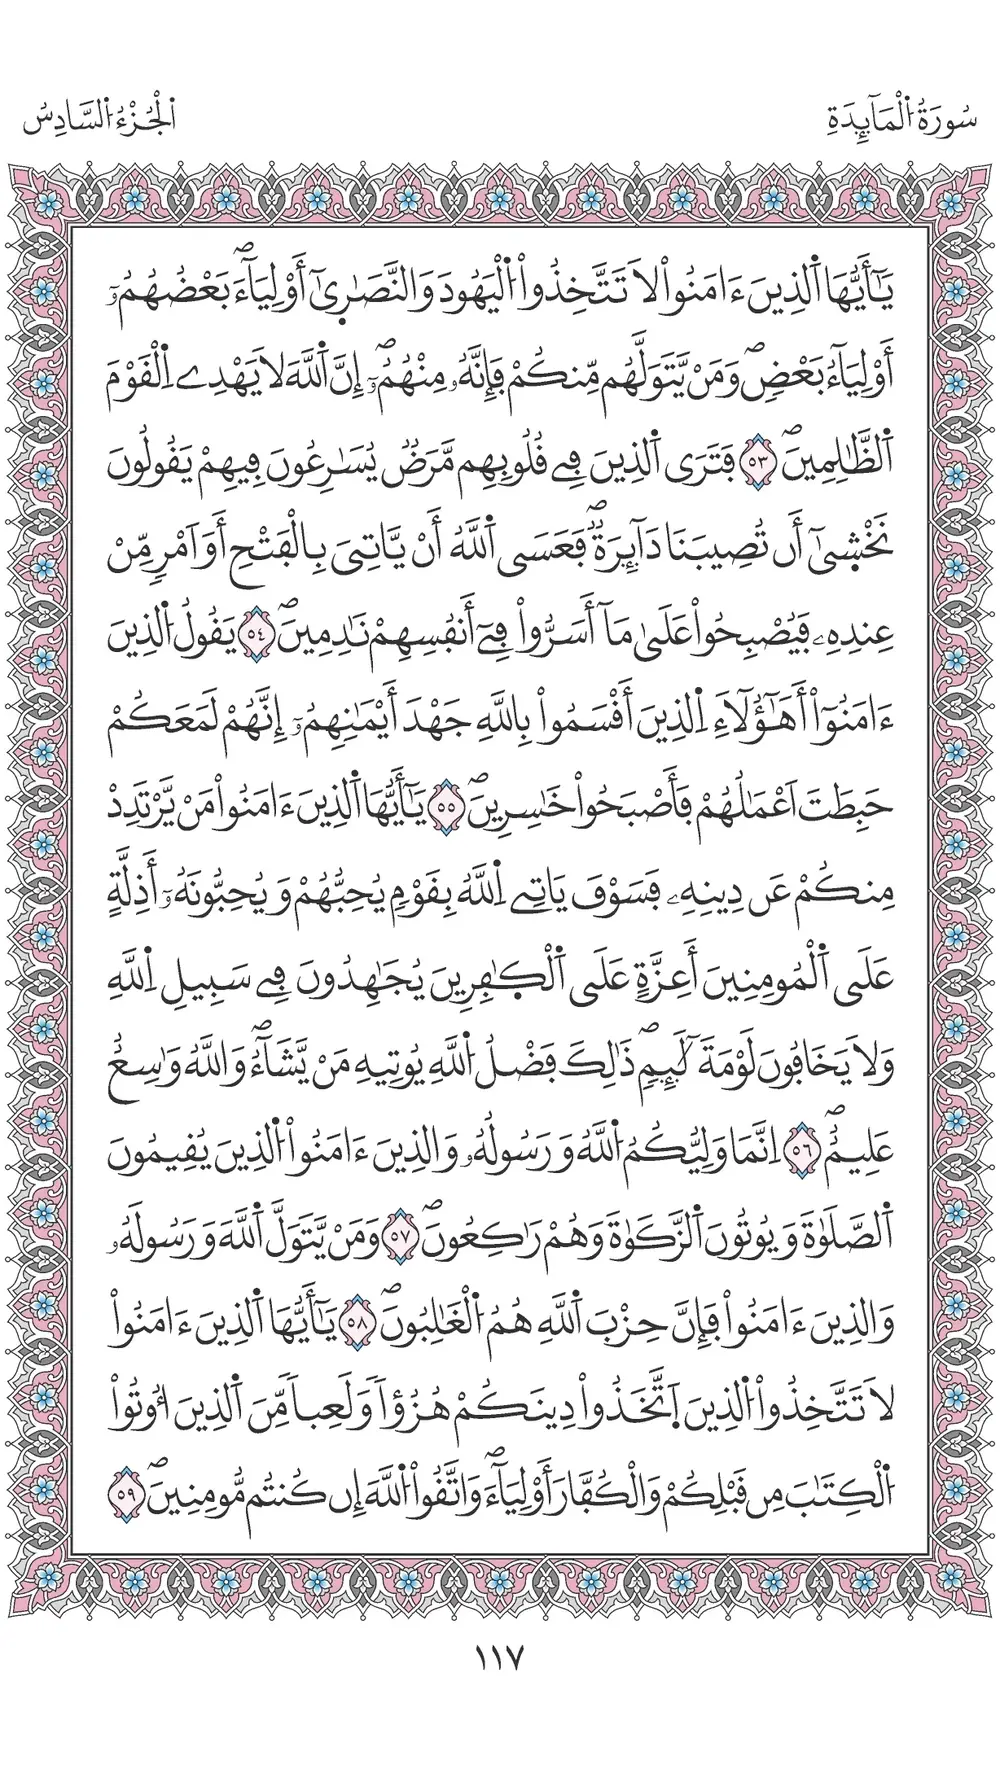 سُورَةُ الْمَآئِدَةِ
الْجُزْءُ السَّادِسُ
يَٰٓأَيُّهَا اَ۬لذِينَ ءَامَنُواْ لَا تَتَّخِذُواْ اُ۬لْيَهُودَ وَالنَّصَٰر۪ىٰٓ أَوْلِيَآءَۖ بَعْضُهُمُۥٓ
أَوْلِيَآءُ بَعْضٖۖ وَمَنْ يَّتَوَلَّهُم مِّنكُمْ فَإِنَّهُۥ مِنْهُمُۥٓۖ إِنَّ اَ۬للَّهَ لَا يَهْدِے اِ۬لْقَوْمَ
اَ۬لظَّٰلِمِينَۖ ٥٣ فَتَرَى اَ۬لذِينَ فِے قُلُوبِهِم مَّرَضٞ يُسَٰرِعُونَ فِيهِمْ يَقُولُونَ
نَخْش۪ىٰٓ أَن تُصِيبَنَا دَآئِرَةٞۖ فَعَسَى اَ۬للَّهُ أَنْ يَّاتِيَ بِالْفَتْحِ أَوَ اَمْرٖ مِّنْ
عِندِهِۦ فَيُصْبِحُواْ عَلَىٰ مَآ أَسَرُّواْ فِےٓ أَنفُسِهِمْ نَٰدِمِينَۖ ٥٤ يَقُولُ اُ۬لذِينَ
ءَامَنُوٓاْ أَهَٰٓؤُلَآءِ اِ۬لذِينَ أَقْسَمُواْ بِاللَّهِ جَهْدَ أَيْمَٰنِهِمُۥٓ إِنَّهُمْ لَمَعَكُمْ
حَبِطَتَ اَعْمَٰلُهُمْ فَأَصْبَحُواْ خَٰسِرِينَۖ ٥٥ يَٰٓأَيُّهَا اَ۬لذِينَ ءَامَنُواْ مَنْ يَّرْتَدِدْ
مِنكُمْ عَن دِينِهِۦ فَسَوْفَ يَاتِے اِ۬للَّهُ بِقَوْمٖ يُحِبُّهُمْ وَيُحِبُّونَهُۥٓ أَذِلَّةٍ
عَلَى اَ۬لْمُومِنِينَ أَعِزَّةٍ عَلَى اَ۬لْكٰ۪فِرِينَ يُجَٰهِدُونَ فِے سَبِيلِ اِ۬للَّهِ
وَلَا يَخَافُونَ لَوْمَةَ لَآئِمٖۖ ذَٰلِكَ فَضْلُ اُ۬للَّهِ يُوتِيهِ مَنْ يَّشَآءُۖ وَاللَّهُ وَٰسِعٌ
عَلِيمٌۖ ٥٦ اِنَّمَا وَلِيُّكُمُ اُ۬للَّهُ وَرَسُولُهُۥ وَالذِينَ ءَامَنُواْ اُ۬لذِينَ يُقِيمُونَ
اَ۬لصَّلَوٰةَ وَيُوتُونَ اَ۬لزَّكَوٰةَ وَهُمْ رَٰكِعُونَۖ ٥٧ وَمَنْ يَّتَوَلَّ اَ۬للَّهَ وَرَسُولَهُۥ
وَالذِينَ ءَامَنُواْ فَإِنَّ حِزْبَ اَ۬للَّهِ هُمُ اُ۬لْغَٰلِبُونَۖ ٥٨ يَٰٓأَيُّهَا اَ۬لذِينَ ءَامَنُواْ
لَا تَتَّخِذُواْ اُ۬لذِينَ اَ۪تَّخَذُواْ دِينَكُمْ هُزُؤاٗ وَلَعِباٗ مِّنَ اَ۬لذِينَ أُوتُواْ
اُ۬لْكِتَٰبَ مِن قَبْلِكُمْ وَالْكُفَّارَ أَوْلِيَآءَۖ وَاتَّقُواْ اُ۬للَّهَ إِن كُنتُم مُّومِنِينَۖ ٥٩
١١٧